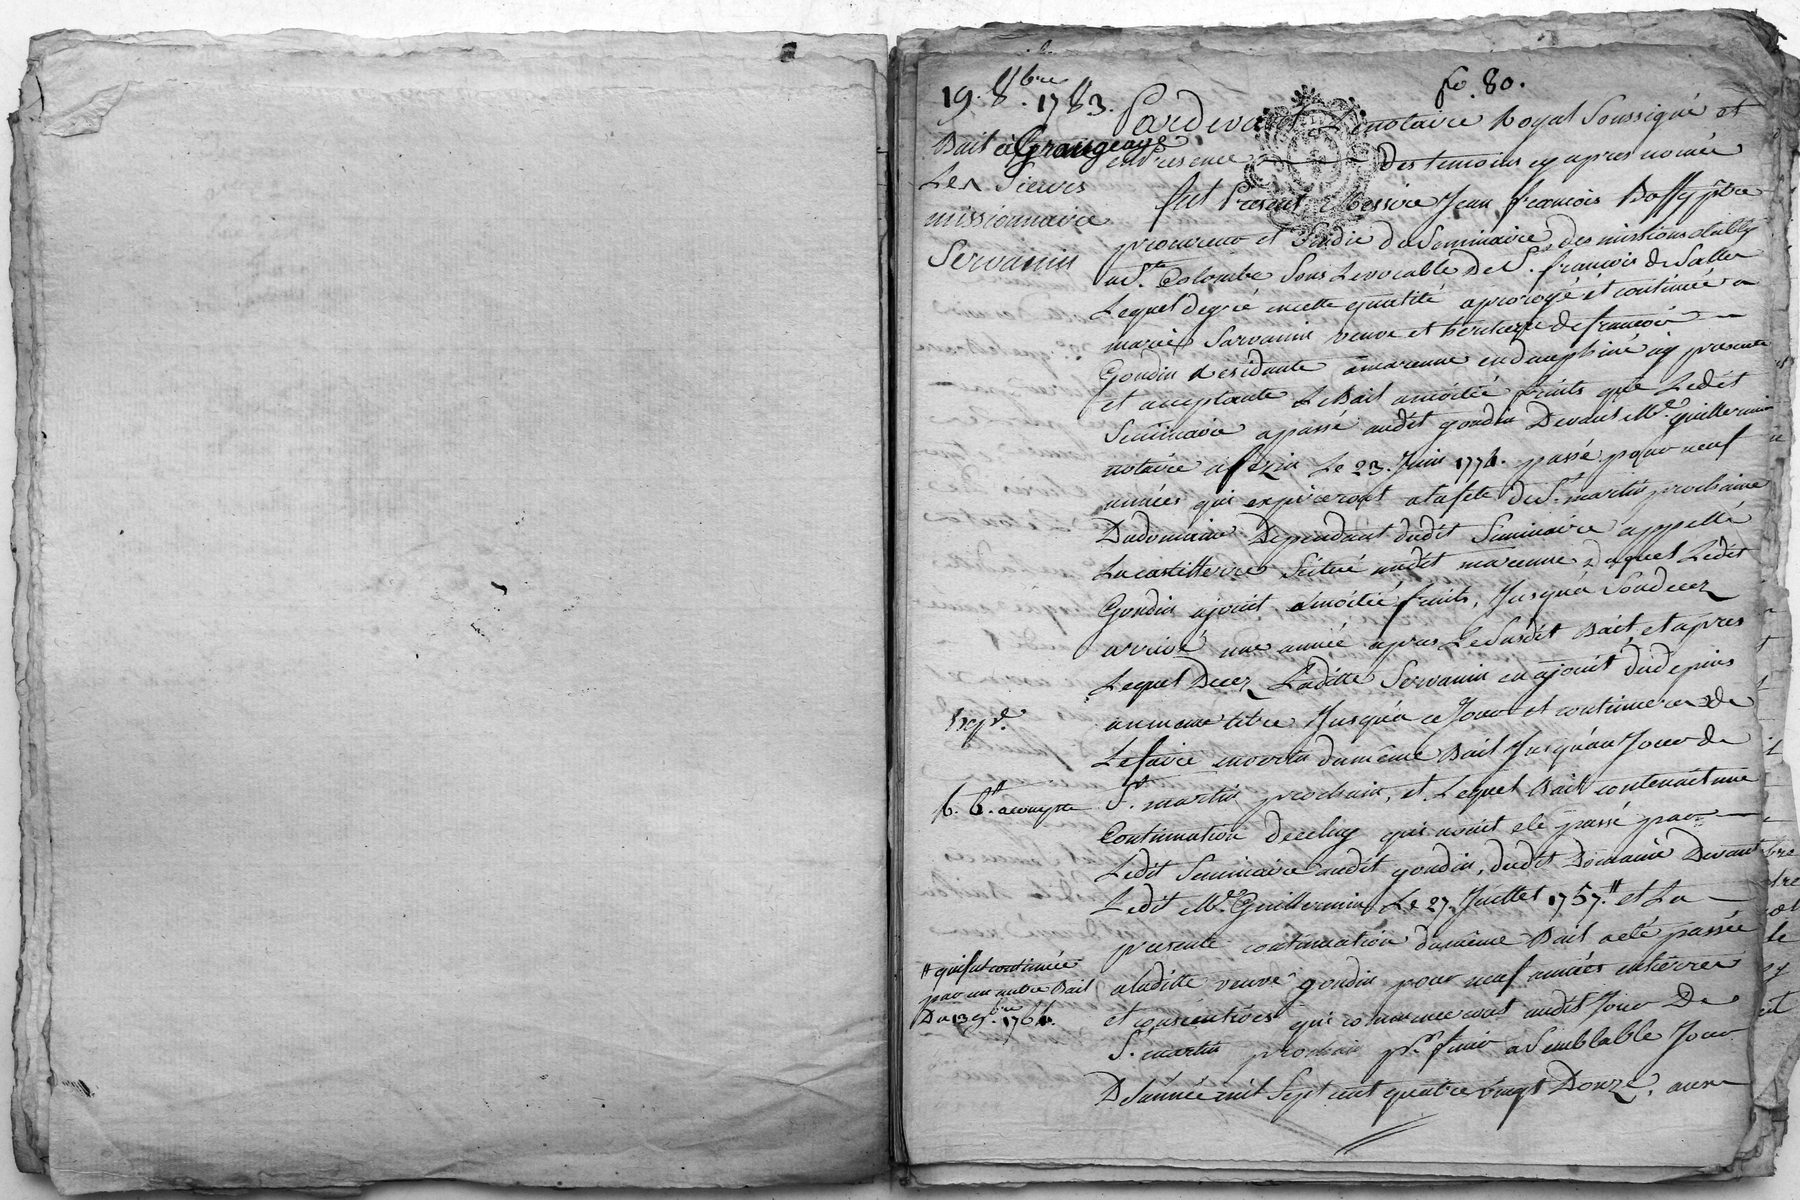 fo. 80.
19. 8bre. 1783.
Bail à Grangeage
Les Sieurs
missionnaire
Servanin
Expd.
6. 6d. acompte
# qui fut continuée
par un autre Bail
Du 13 9bre. 1766.
Pardevant notaire Royal Soussigné et
en Presence des temoins cy apres nomée
fut Present Messire Jean francois Boffy ptre
procureur et Sindic du Seminaire des missions etably
a Ste. Colombe Sous Le vocable De St. francois de Salle
Lequel degré en cette qualité a prorogé et continuée a
marie Servanin veuve et heritiere de francois
Gondin Residante a marenne en dauphiné icy presente
et acceptante Le Bail a moitié fruits que Ledit
Seminaire a passé audit gondin Devant Me. guillermin
notaire a fezin Le 23. Juin 1774. passé pour neuf
années qui expireront a la fete de St. martin prochaine
Du domaine Dependant dudit Seminaire appellé
La castillerie Scitué audit marenne duquel Ledit
Gondin a joui a moitié fruits, Jusqu'a Son decez
arrivé une année apres Le Susdit Bail et apres
Lequel Decez Laditte Servanin en a jouit du depuis
au meme titre Jusqu'a ce Jour et continuera de
Le faire en vertu du même Bail Jusqu'au Jour de
St. martin prochain, et Lequel Bail contenait une
Continuation de celuy qui avait eté passé par
Ledit Seminaire audit gondin, dudit Domaine Devant
Ledit Me. Guillermin Le 27. Juillet 1757. # et La
presente continuation du même Bail a eté passée
a laditte veuve gondin pour neuf années entieres
et consecutives qui commenceront audit Jour De
St. martin prochain pr. finir a Semblable Jour
De l'année mil Sept cent quatre vingt Douze, aux